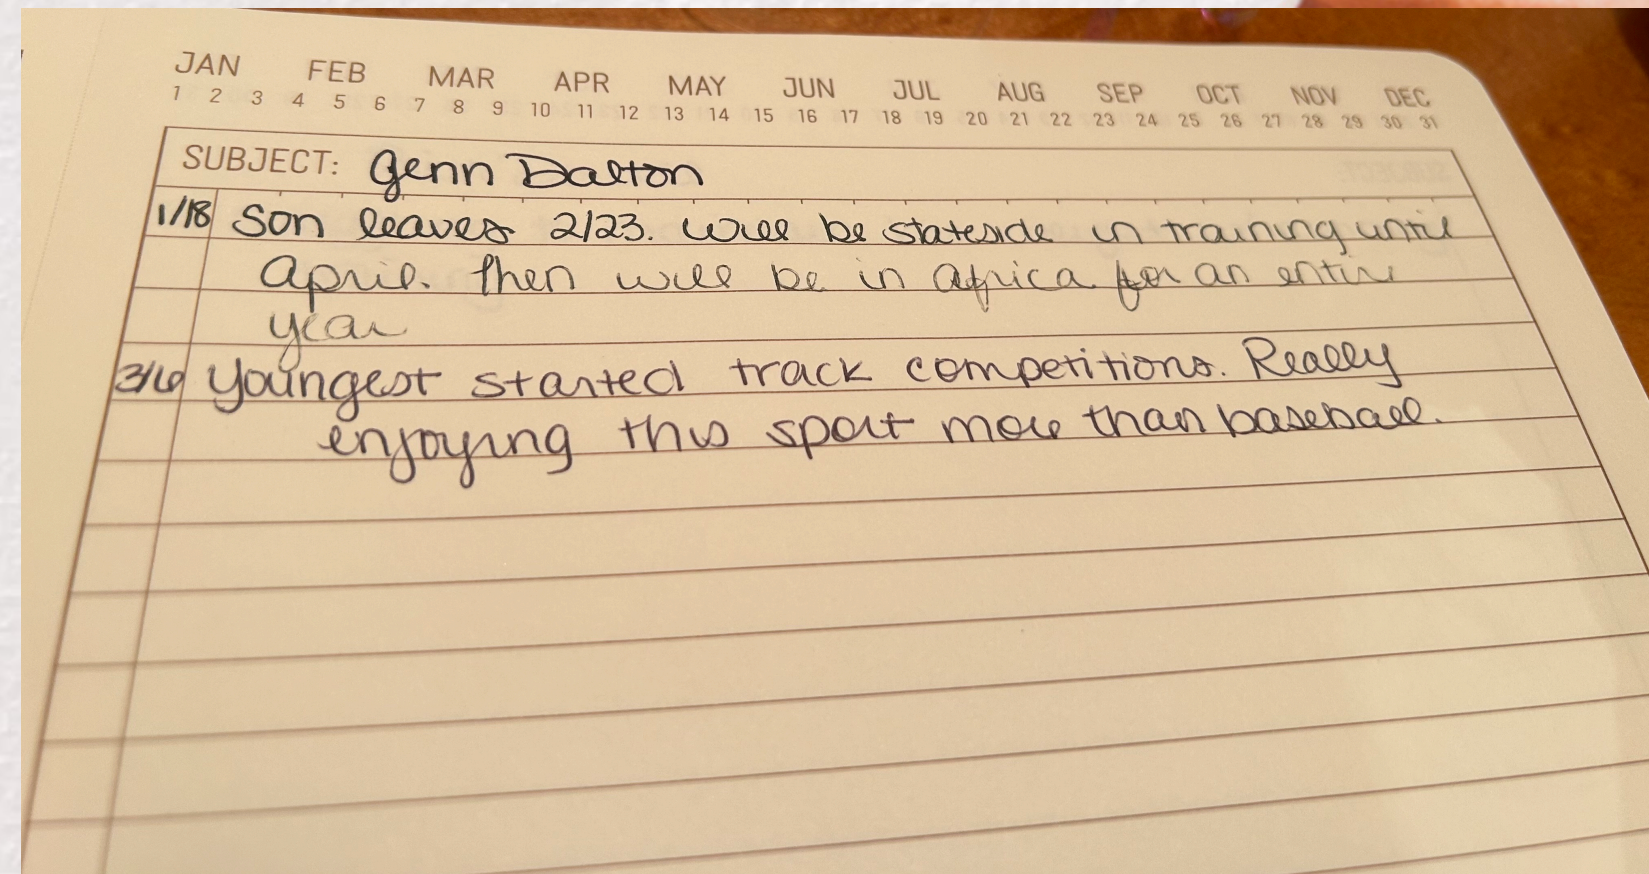 JAN FEB MAR APR MAY JUN JUL AUG SEP OCT NOV DEC
1 2 3 4 5 6 7 8 9 10 11 12 13 14 15 16 17 18 19 20 21 22 23 24 25 26 27 28 29 30 31
SUBJECT: Genn Dalton
1/18 Son leaves 2/23. Will be stateside in training until
April. Then will be in Africa for an entire
year
3/16 Youngest started track competitions. Really
enjoying this sport more than baseball.